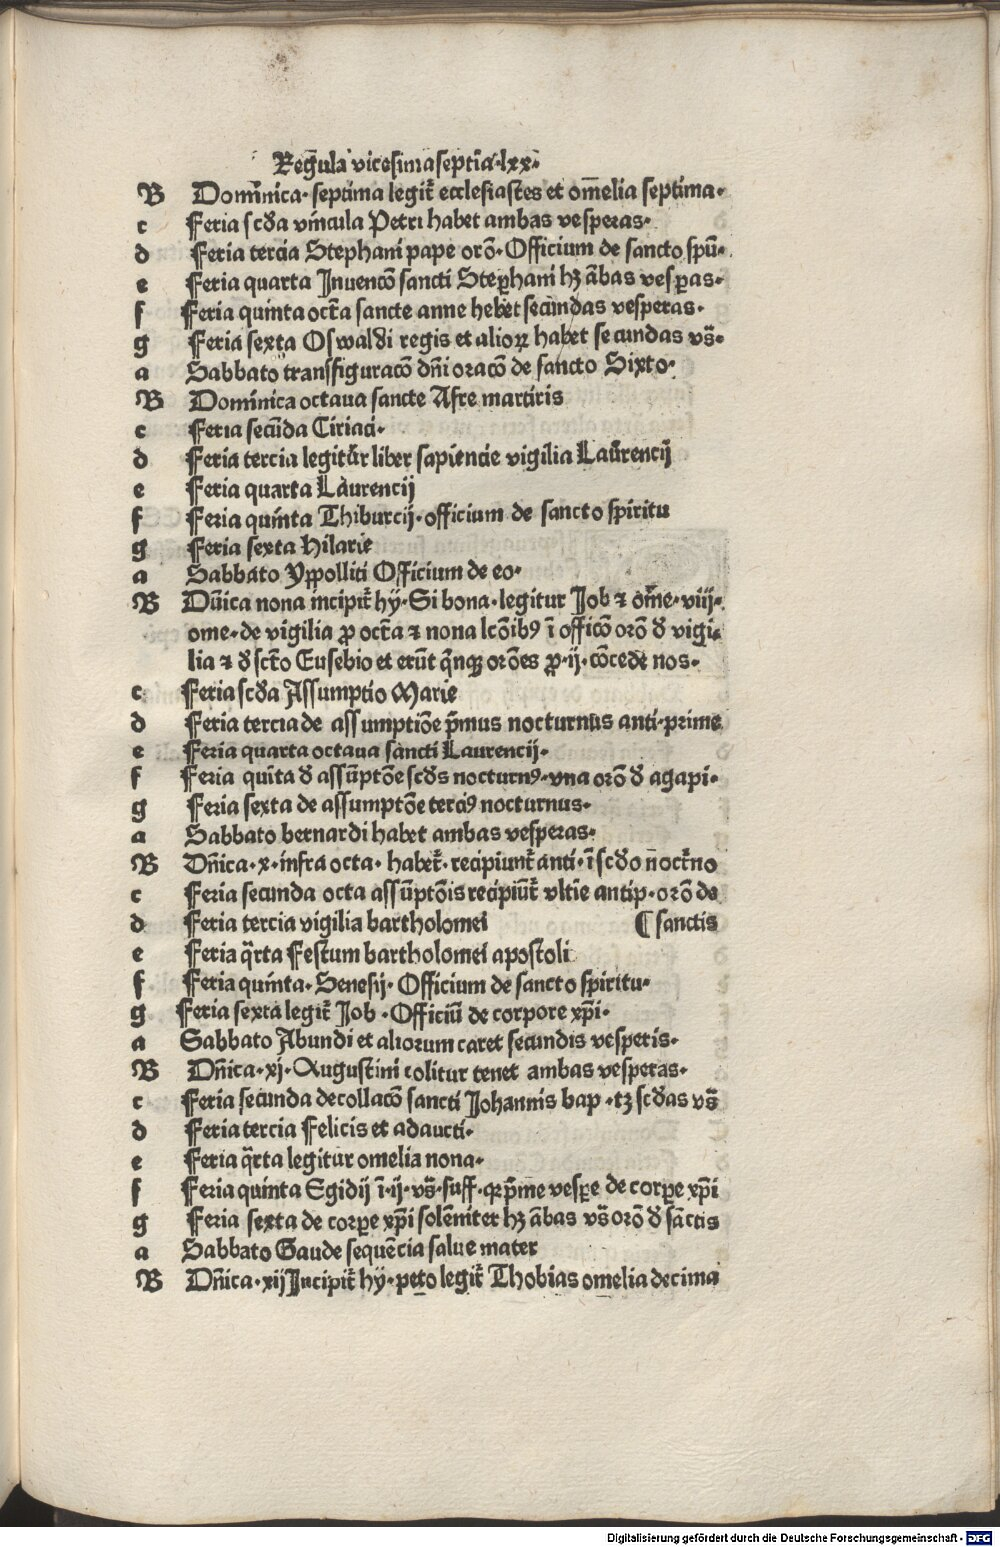 Regula vicesimaseptīa·lxx·
B Domīnica· septima legiť ecclesiastes et om̄elia septima·
c Feria scďa vincula Petri habet ambas vesperas·
d Feria tercia Stephani pape orō· Officium de sancto spū·
e Feria quarta Inuencō sancti Stephani hꝫ ābas vesꝑas·
f Feria quinta octā sancte anne hebet secundas vesperas·
g Feria sexta Oswaldi regis et alioꝝ habet secundas vs̄·
a Sabbato transfiguracō dn̄i oracō de sancto Sixto·
B Dominica octaua sancte Afre martiris
c Feria secūda Ciriaci·
d Feria tercia legitur liber sapiencie vigilia Laurencij
e Feria quarta Laurencij
f Feria quinta Thiburcij· officium de sancto spiritu
g Feria sexta Hilarie
a Sabbato Yppolliti Officium de eo·
B Dn̄ica nona incipiť hy· Si bona· legitur Job ⁊ om̄e· viij·
ome· de vigilia ꝓ octā ⁊ nona lcōibꝰ ī officō orō ď vigi⸗
lia ⁊ ď sctō Eusebio et erūt qͥnqꝫ orōes ꝓ· ij· cōcede nos·
c Feria scďa Assumptio Marie
d Feria tercia de assumptiōe pͥmus nocturnus anti· prime
e Feria quarta octaua sancti Laurencij·
f Feria quīta ď assūptōe scďs nocturnꝰ· vna orō ď agapi·
g Feria sexta de assumptōe terciꝰ nocturnus·
a Sabbato bernardi habet ambas vesperas·
B Dn̄ica· x· infra octa· habeť· recipiunť anti· ī scďo noctʳno
c Feria secunda octa assūptōis recipiūť vltīe antip· orō de
d Feria tercia vigilia bartholomei ¶ sanctis
e Feria qͣrta Festum bartholomei apostoli
f Feria quinta· Genesij· Officium de sancto spiritu·
g Feria sexta legiť Job · Officiū de corpore xp̄i·
a Sabbato Abundi et aliorum caret secundis vesperis·
B Dn̄ica· xj· Augustini colitur tenet ambas vesperas·
c Feria secunda decollacō sancti Johannis bap · tꝫ scďas vs̄
d Feria tercia Felicis et adaucti·
e Feria qͣrta legitur omelia nona·
f Feria quinta Egidij ī· ij· vs̄· suff· ꝗ pͥme vesꝑe de corꝑe xp̄i
g Feria sexta de corꝑe xp̄i solēniter hꝫ ābas vs̄ orō ď sāctis
a Sabbato Gaude sequēcia salue mater
B Dn̄ica· xij Incipiť hy· peto legiť Thobias omelia decima
Digitalisierung gefördert durch die Deutsche Forschungsgemeinschaft - DFG